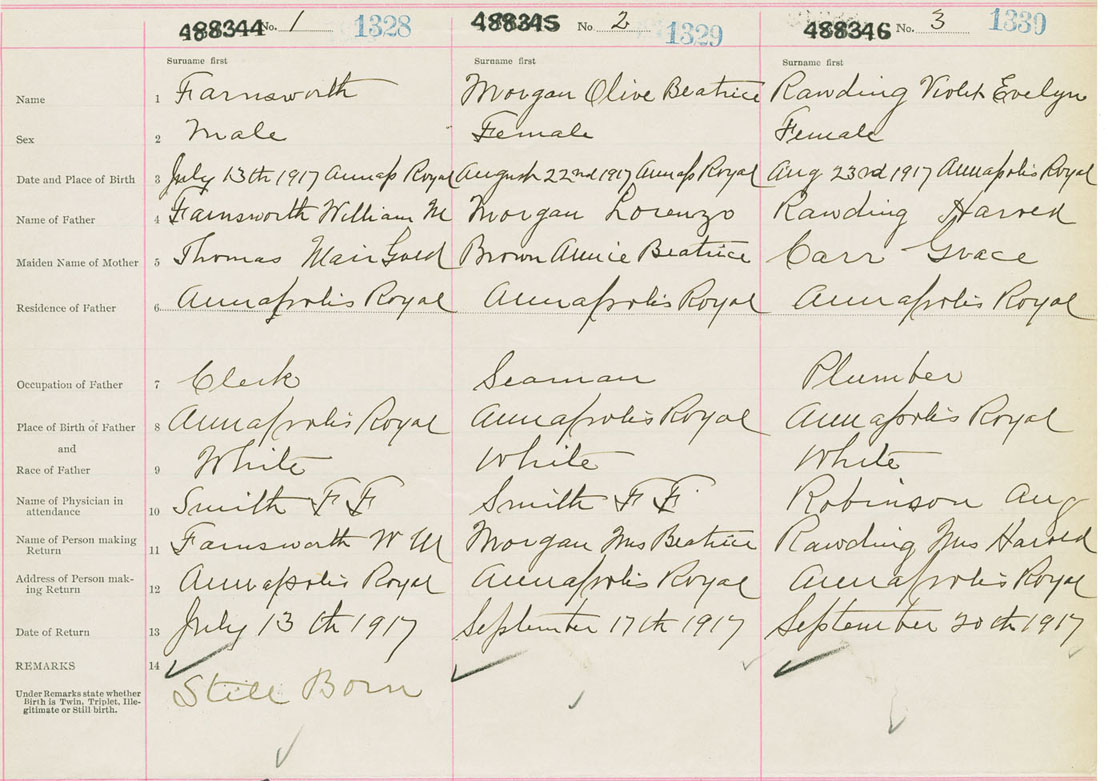 488344 No. 1 1328 488345 No 2 1329 488346 No. 3 1339
Surname first Surname first Surname first
Name 1 Farnsworth Morgan Olive Beatrice Rawding Violet Evelyn
Sex 2 Male Female Female
Date and Place of Birth 3 July 13th 1917 Annap Royal August 22nd 1917 Annap Royal Aug 23rd 1917 Annapolis Royal
Name of Father 4 Farnsworth William M Morgan Lorenzo Rawding Harred
Maiden Name of Mother 5 Thomas Brown Annie Beatrice Carr Grace
Residence of Father 6 Annapolis Royal Annapolis Royal Annapolis Royal
Occupation of Father 7 Clerk Seaman Plumber
Place of Birth of Father 8 Annapolis Royal Annapolis Royal Annapolis Royal
and
Race of Father 9 White White White
Name of Physician in
attendance 10 Smith F F Smith F F Robinson Aug
Name of Person making
Return 11 Farnsworth W M Morgan Mrs Beatrice Rawding Mrs Harred
Address of Person mak-
ing Return 12 Annapolis Royal Annapolis Royal Annapolis Royal
Date of Return 13 July 13th 1917 September 17th 1917 September 20th 1917
REMARKS 14
Under Remarks state whether
Birth is Twin, Triplet, Ille-
gitimate or Still birth.
Still Born